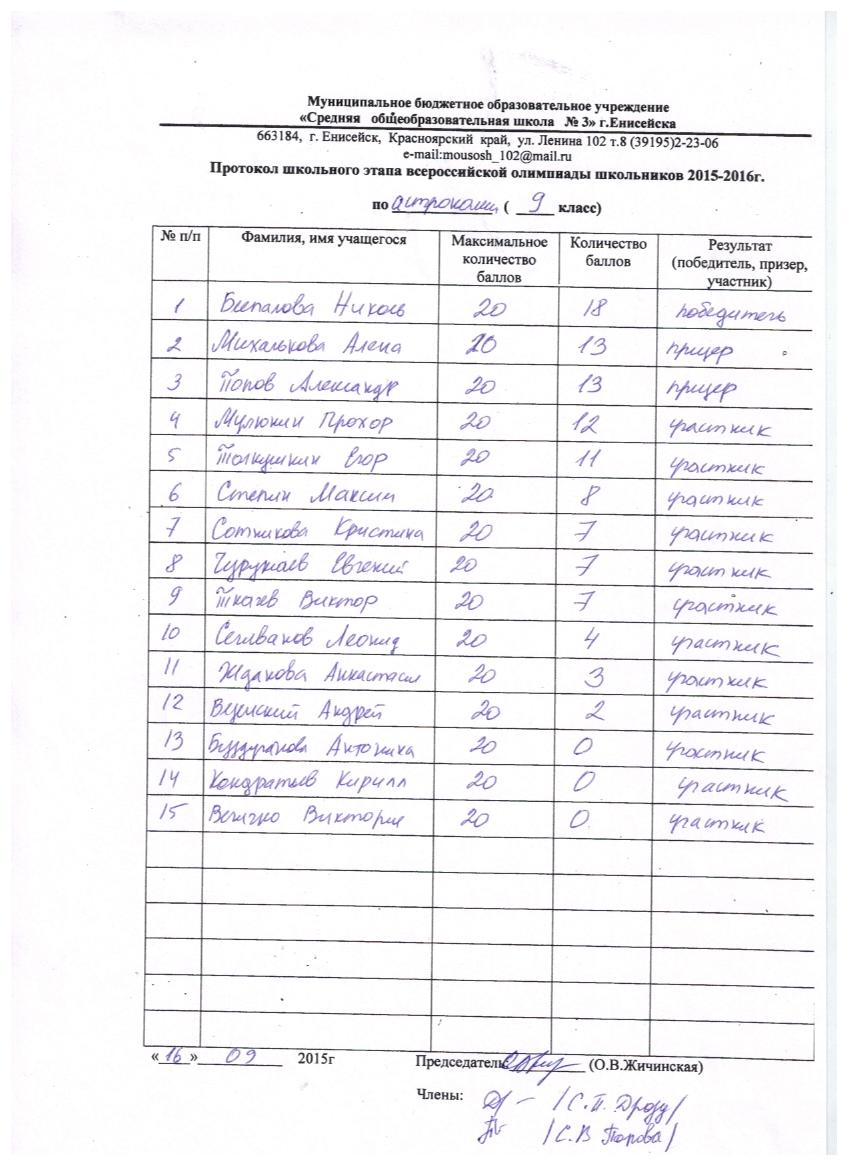 Муниципальное бюджетное образовательное учреждение
«Средняя общеобразовательная школа № 3» г.Енисейска
663184, г. Енисейск, Красноярский край, ул. Ленина 102 т.8 (39195)2-23-06
e-mail:mousosh_102@mail.ru
Протокол школьного этапа всероссийской олимпиады школьников 2015-2016г.
по астрономии ( 9 класс)
№ п/п Фамилия, имя учащегося Максимальное количество баллов Количество баллов Результат (победитель, призер, участник)
1 Беспалова Николь 20 18 победитель
2 Михалькова Алена 20 13 призер
3 Попов Александр 20 13 призер
4 Мулюкин Прохор 20 12 участник
5 Толкушкин Егор 20 11 участник
6 Степин Максим 20 8 участник
7 Сотникова Кристина 20 7 участник
8 Евгений 20 7 участник
9 Ткачев Виктор 20 7 участник
10 Селиванов Леонид 20 4 участник
11 Жданова Анастасия 20 3 участник
12 Андрей 20 2 участник
13 Антонина 20 0 участник
14 Кондратьев Кирилл 20 0 участник
15 Величко Виктория 20 0 участник
« 16 » 09 2015г Председатель: (О.В.Жичинская)
Члены: /С.П. Дрозд/
/С.В Попова/